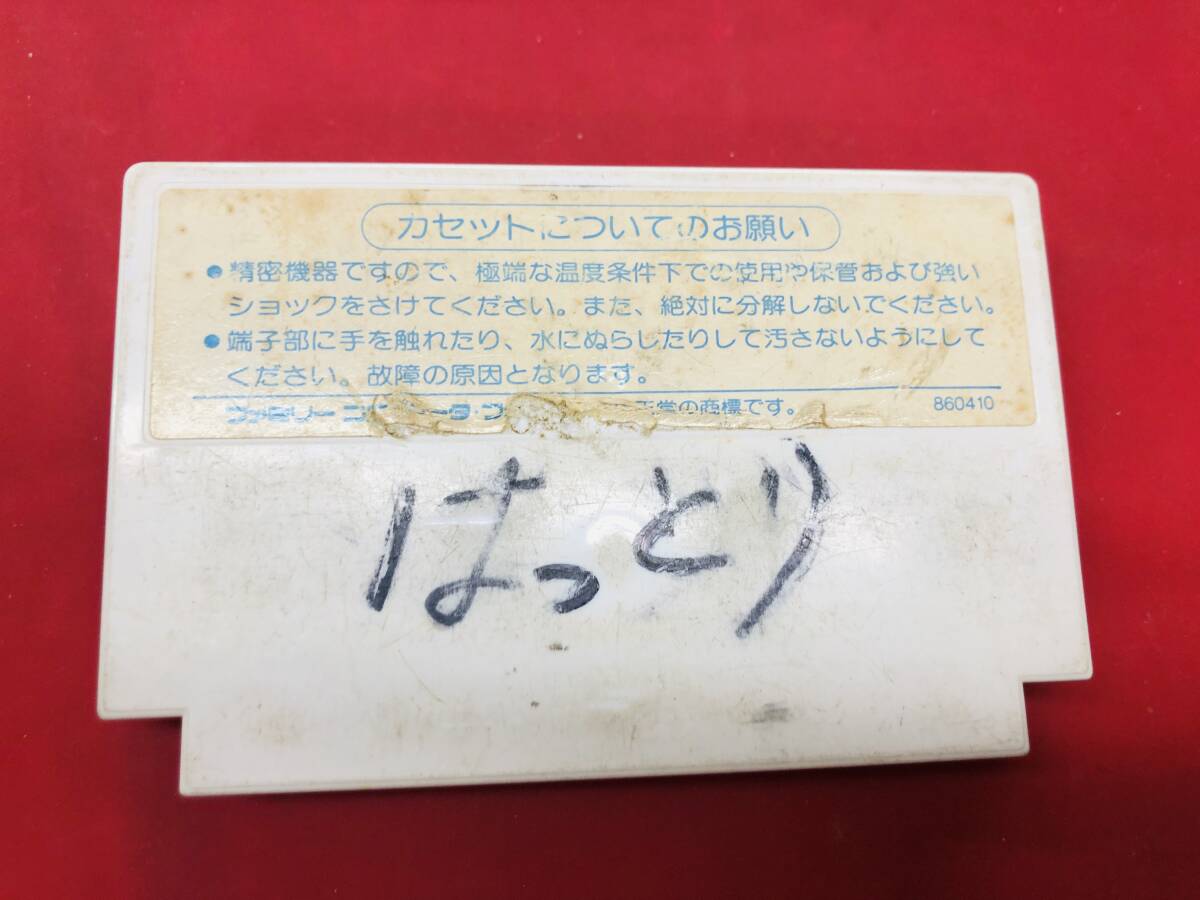 カセットについてのお願い
●精密機器ですので、極端な温度条件下での使用や保管および強い
ショックをさけてください。また、絶対に分解しないでください。
●端子部に手を触れたり、水にぬらしたりして汚さないようにして
ください。故障の原因となります。
ファミリー の商標です。 860410
はっとり